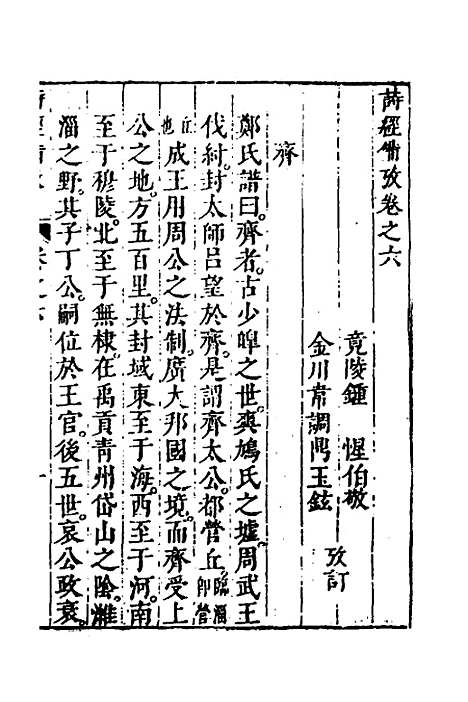 詩經備攷卷之六
竟陵鍾　惺伯敬
金川韋調鼎玉鉉
攷訂
齊
鄭氏譜曰。齊者。古少皡之世。爽鳩氏之墟。周武王
伐紂。封太師呂望於齊。是謂齊太公。都營丘。臨淄即營
丘也　成王用周公之法制。廣大邦國之境。而齊受上
公之地。方五百里。其封域東至于海。西至于河。南
至于穆陵。北至于無棣。在禹貢青州岱山之陰。濰
淄之野。其子丁公。嗣位於王官。後五世。哀公政衰。